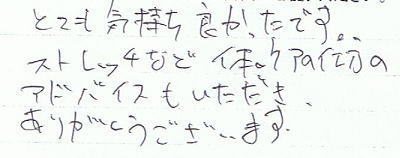 とても気持ち良かったです。
ストレッチなど体のケアの仕方の
アドバイスもいただき、
ありがとうございます。